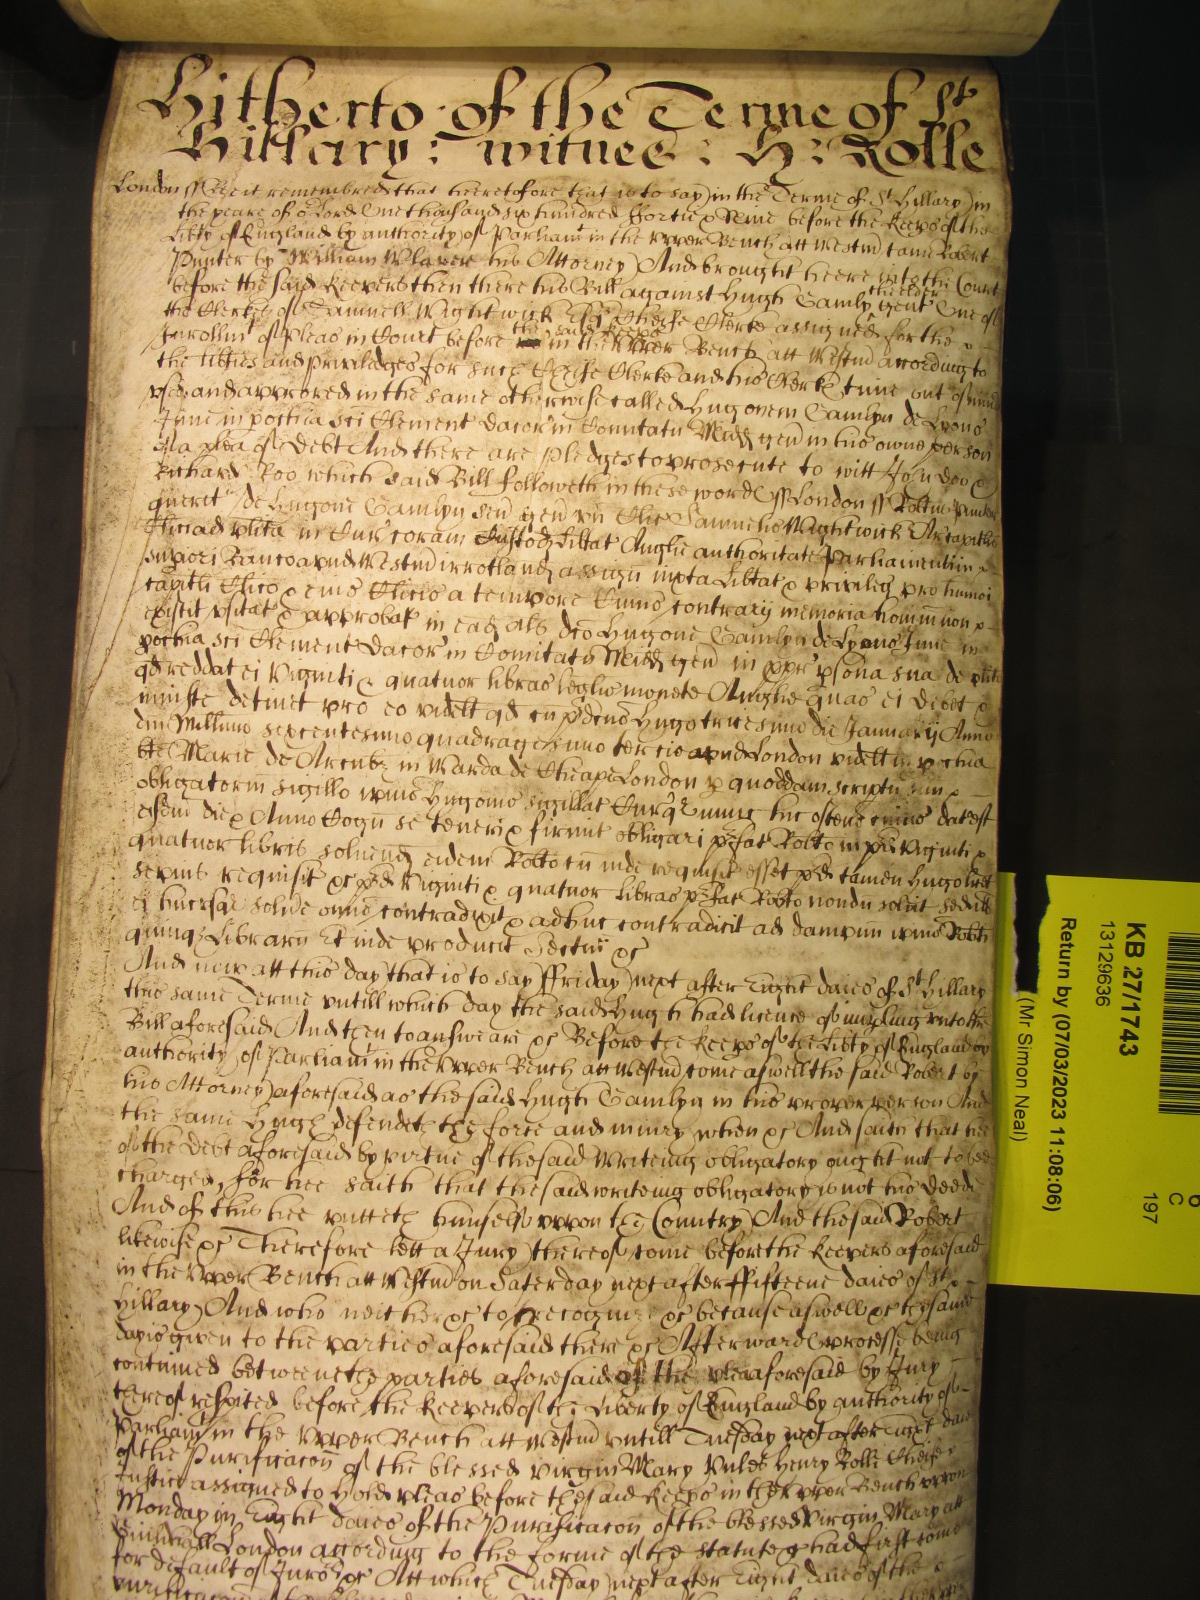 Hitherto of the Terme of St
Hillary: witnes: H: Rolle
London ss Bee it remembred that heeretofore that is to say in the Terme of St Hillary in
the yeare of or Lord One thousand six hundred ffortie & Nine before the Keeps of the
Libty of England by authority of Parliamt in the Upper Bench att Westm came Robert
Punter by William his Attorney And brought heere into the Court
before the said Keepers then there his Bill against Hugh Gamlyn the elder gent One of
the Clerkes of Samuell Wightwick Esqr Cheife Clerke assigned for the
Inrollmt of Pleas in Court before the said Keeps in the Upper Bench att Westm according to
the libties and priviledges for such Cheife Clerke and his Clerks time out of mind
used and approved in the same otherwise called Hugonem Gamlyn de Lyons
Inne in pochia sci Clement Dacor in Comitatu Midd gen in his owne person
of a plea of Debt And there are pledges to prosecute to witt John Doo &
Richard Roo which said Bill followeth in these words ss London ss Robtus Punter
queret de Hugone Gamlyn sen gen un Clic Samuelis Wightwick Ar capitlis
Clici ad plita in Cur coram Custod Libtat Anglie authoritate Parliamenti in
supiori Banco apud Westm irrotland assign iuxta Libtat & privileg pro humoi
capitli Clico & eius Clicis a tempore Cuius contrarij memoria hominum non
existit usitat & approbat in ead als dco Hugone Gamlyn de Lyons Inne in
pochia sci Clement Dacor in Comitatu Midd gen in ppr psona sua de plito
qd reddat ei Viginti & quatuor libras leglis monete Anglie quas ei debet &
iniuste detinet pro eo videlt qd cu pdcus Hugo tricesimo die Januarij Anno
Dni Millimo sexcentesimo quadragesimo tercio apud London videlt in pochia
bte Marie de Arcubz in Warda de Cheape London p quoddam scriptu suu
obligatorm sigillo ipius Hugonis sigillat Curqz nunc hic ostens cuius dat est
eisdm die & Anno Cogn se teneri & firmit obligari pfat Robto in pd Viginti &
quatuor libris solvend eidem Robto cu inde requisit esset pd tamen Hugo licet
sepius requisit &c pd Viginti & quatuor libras pfat Robto nondu solvit sed ill
ei hucusqz solve omio contradixit & adhuc contradicit ad dampnu ipius Robti
quinqz Librarn Et inde producit Sectam &c
And now att this day that is to say ffriday next after Eight daies of St Hillary
this same Terme untill which day the said Hugh had licence of imparling unto the
Bill aforesaid And then to answeare &c Before the Keeps of the Libty of England by
authority of Parliamt in the Upper Bench att Westm come aswell the said Robert by
his Attorney aforesaid as the said Hugh Gamlyn in his proper person And
the same Hugh defendeth the force and iniury when &c And saith that hee
of the Debt aforesaid by virtue of the said Writeing obligatory ought not to bee
charged, for hee saith that the said writeing obligatory is not his Deede
And of this hee putteth himself upon the Country And the said Robert
likewise &c Therefore lett a Jury thereof come before the Keepers aforesaid
in the Upper Bench att Westm on Saterday next after ffifteene daies of St
Hillary And who neither &c to recognize &c because aswell &c the same
day is given to the parties aforesaid there &c Afterwards processe being
continued betweene the parties aforesaid of the plea aforesaid by Jury
thereof respited before the Keeps of the Liberty of England by authority of
Parliamt in the Upper Bench att Westm untill Tuesday next after Eight daies
of the Purificacon of the blessed Virgin Mary Unles Henry Rolle Cheife
Justice assigned to hold pleas before the said Keeps in the upper Bench upon
Monday in Eight daies of the Purificacon of the Blessed Virgin Mary att
Guildhall London according to the forme of the statute &c had first come
for default of Jurors &c Att which Tuesday next after Eight daies of the
KB 27/1743
13129636
Return by (07/03/2023 11:08:06)
(Mr Simon Neal)
C
197